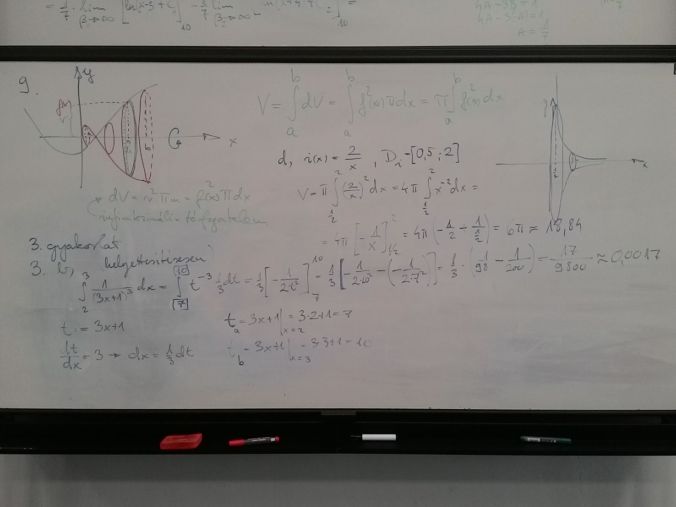 = 1/7 · lim
9.
y
f(x)
x
V = ∫_a^b dV = ∫_a^b f²(x)π dx = π ∫_a^b f²(x) dx
dV = r²πm = f²(x)π dx
infinitezimális térfogatelem
y
x
d, i(x) = 2/x , D_i = [0,5 ; 2]
V = π ∫_{1/2}^2 (2/x)² dx = 4π ∫_{1/2}^2 x^-2 dx =
= 4π [-1/x]_{1/2}^2 = 4π (-1/2 + 1/(1/2)) = 6π ≈ 18,84
3. gyakorlat
3. b, helyettesítéssel
∫_2^3 1/(3x+1)³ dx = ∫_7^10 t^-3 1/3 dt = 1/3 [-1/(2t²)]_7^10 = 1/3 [-1/(2·10²) - (-1/(2·7²))] = 1/3 · (1/98 - 1/200) = 17/9800 ≈ 0,0017
t = 3x+1
t_a = 3x+1|_{x=2} = 3·2+1 = 7
dt/dx = 3 → dx = 1/3 dt
t_b = 3x+1|_{x=3} = 3·3+1 = 10